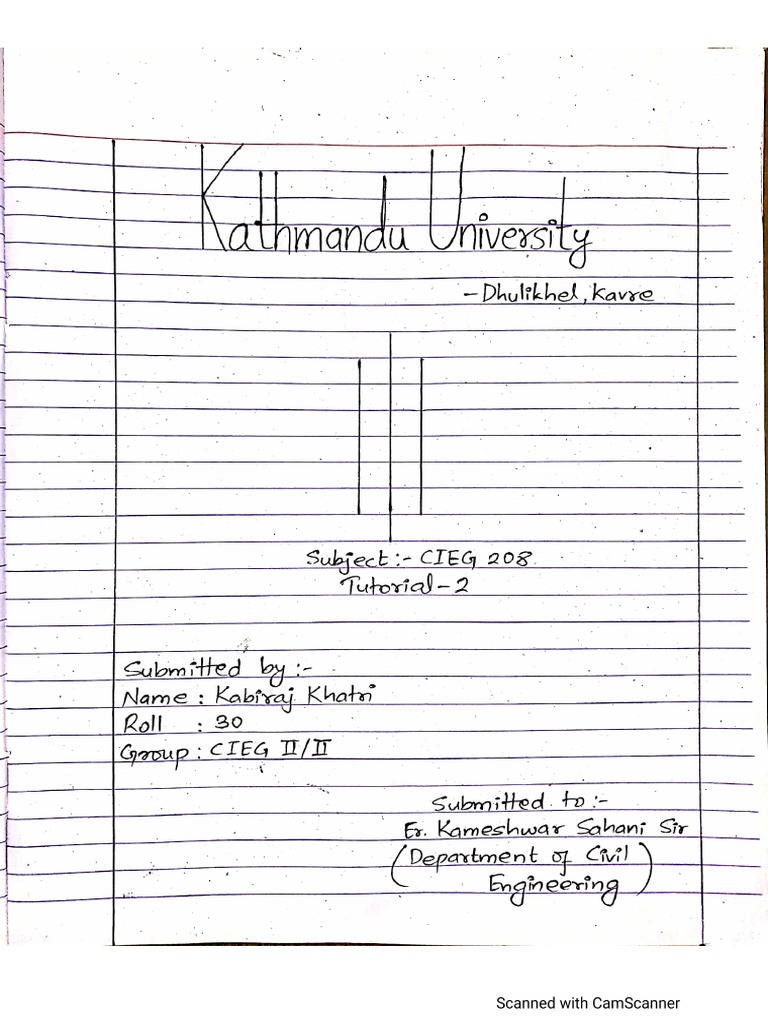 Kathmandu University
- Dhulikhel, Kavre
Subject:- CIEG 208
Tutorial-2
Submitted by :-
Name : Kabiraj Khatri
Roll : 30
Group : CIEG II/II
Submitted to :-
Er. Kameshwar Sahani Sir
(Department of Civil
Engineering)
Scanned with CamScanner